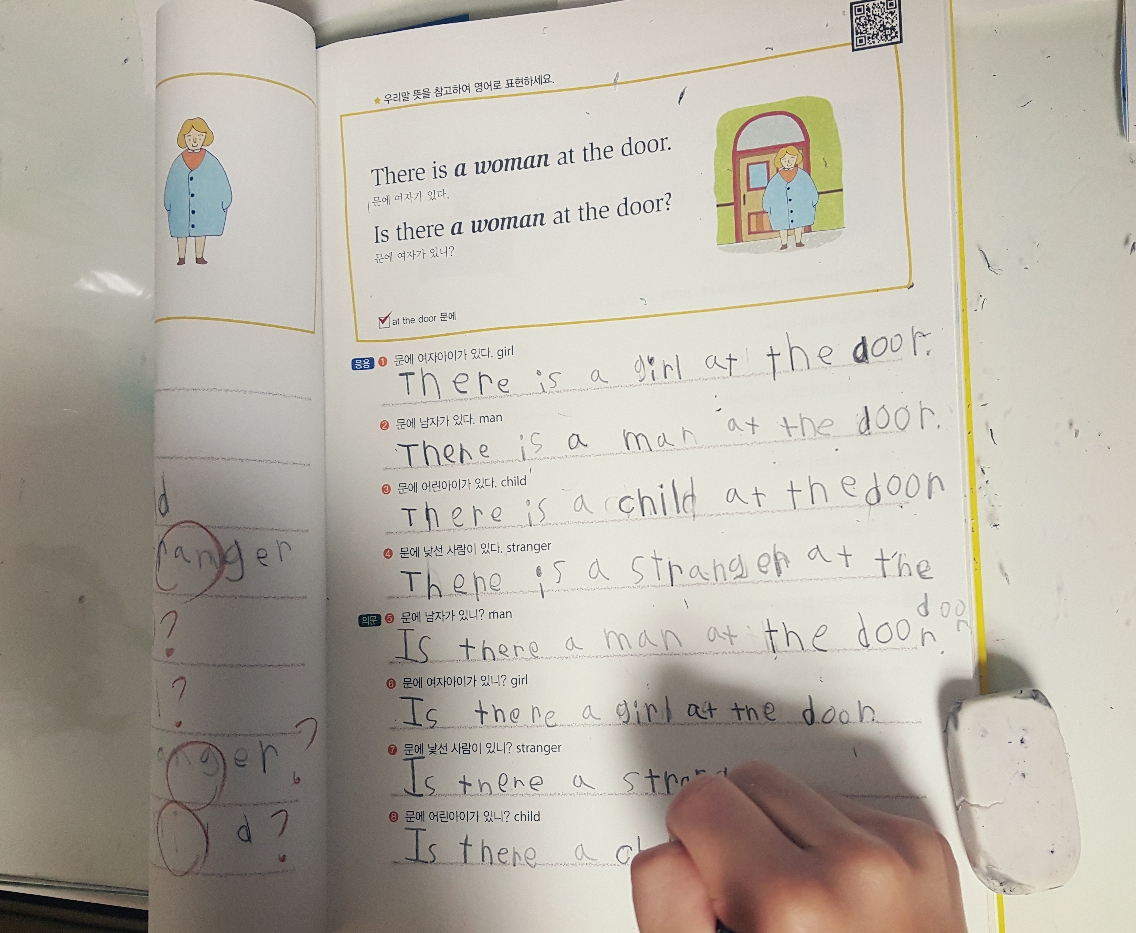 ★ 우리말 뜻을 참고하여 영어로 표현하세요.
There is a woman at the door.
문에 여자가 있다.
Is there a woman at the door?
문에 여자가 있니?
at the door 문에
응용 1 문에 여자아이가 있다. girl
There is a girl at the door.
2 문에 남자가 있다. man
There is a man at the door.
3 문에 어린아이가 있다. child
There is a child at the door
4 문에 낯선 사람이 있다. stranger
There is a stranger at the
door
의문 5 문에 남자가 있니? man
Is there a man at the door.
6 문에 여자아이가 있니? girl
Is there a girl at the door.
7 문에 낯선 사람이 있니? stranger
Is there a
8 문에 어린아이가 있니? child
Is there a
d
ranger
?
?
nger ?
d ?